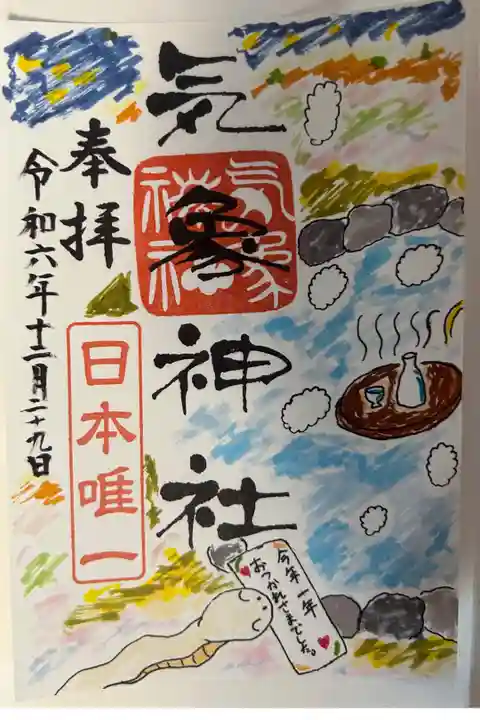 奉拝
令和六年十二月二十九日
日本唯一
気象神社
気象
神社
今年一年
おつかれさまでした。